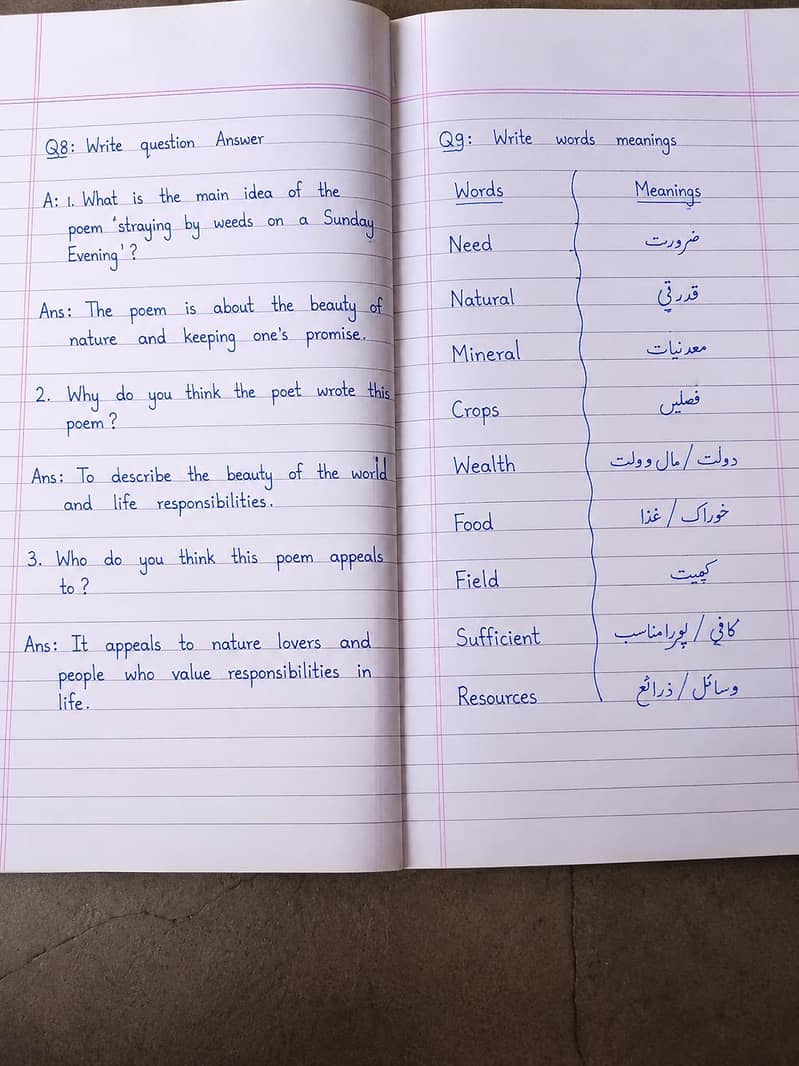 Q8: Write question Answer
A: 1. What is the main idea of the
poem 'straying by weeds on a Sunday
Evening'?
Ans: The poem is about the beauty of
nature and keeping one's promise.
2. Why do you think the poet wrote this
poem?
Ans: To describe the beauty of the world
and life responsibilities.
3. Who do you think this poem appeals
to?
Ans: It appeals to nature lovers and
people who value responsibilities in
life.
Q9: Write words meanings
Words Meanings
Need ضرورت
Natural قدرتي
Mineral معدنیات
Crops فصلیں
Wealth دولت / مال وولت
Food خوراک / غذا
Field کھیت
Sufficient کافي / پورا مناسب
Resources وسائل / ذرائع